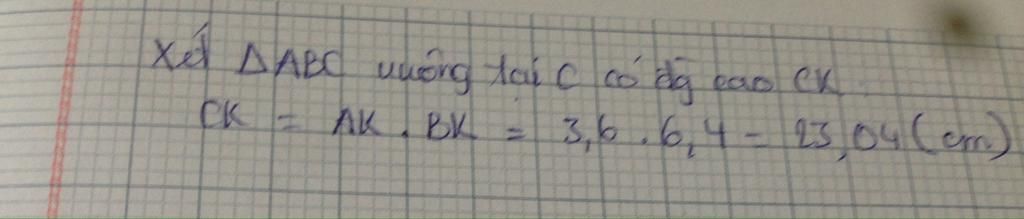 Xét ΔABC vuông tại C có đg cao CK
CK = AK . BK = 3,6 . 6,4 = 23,04 (cm)